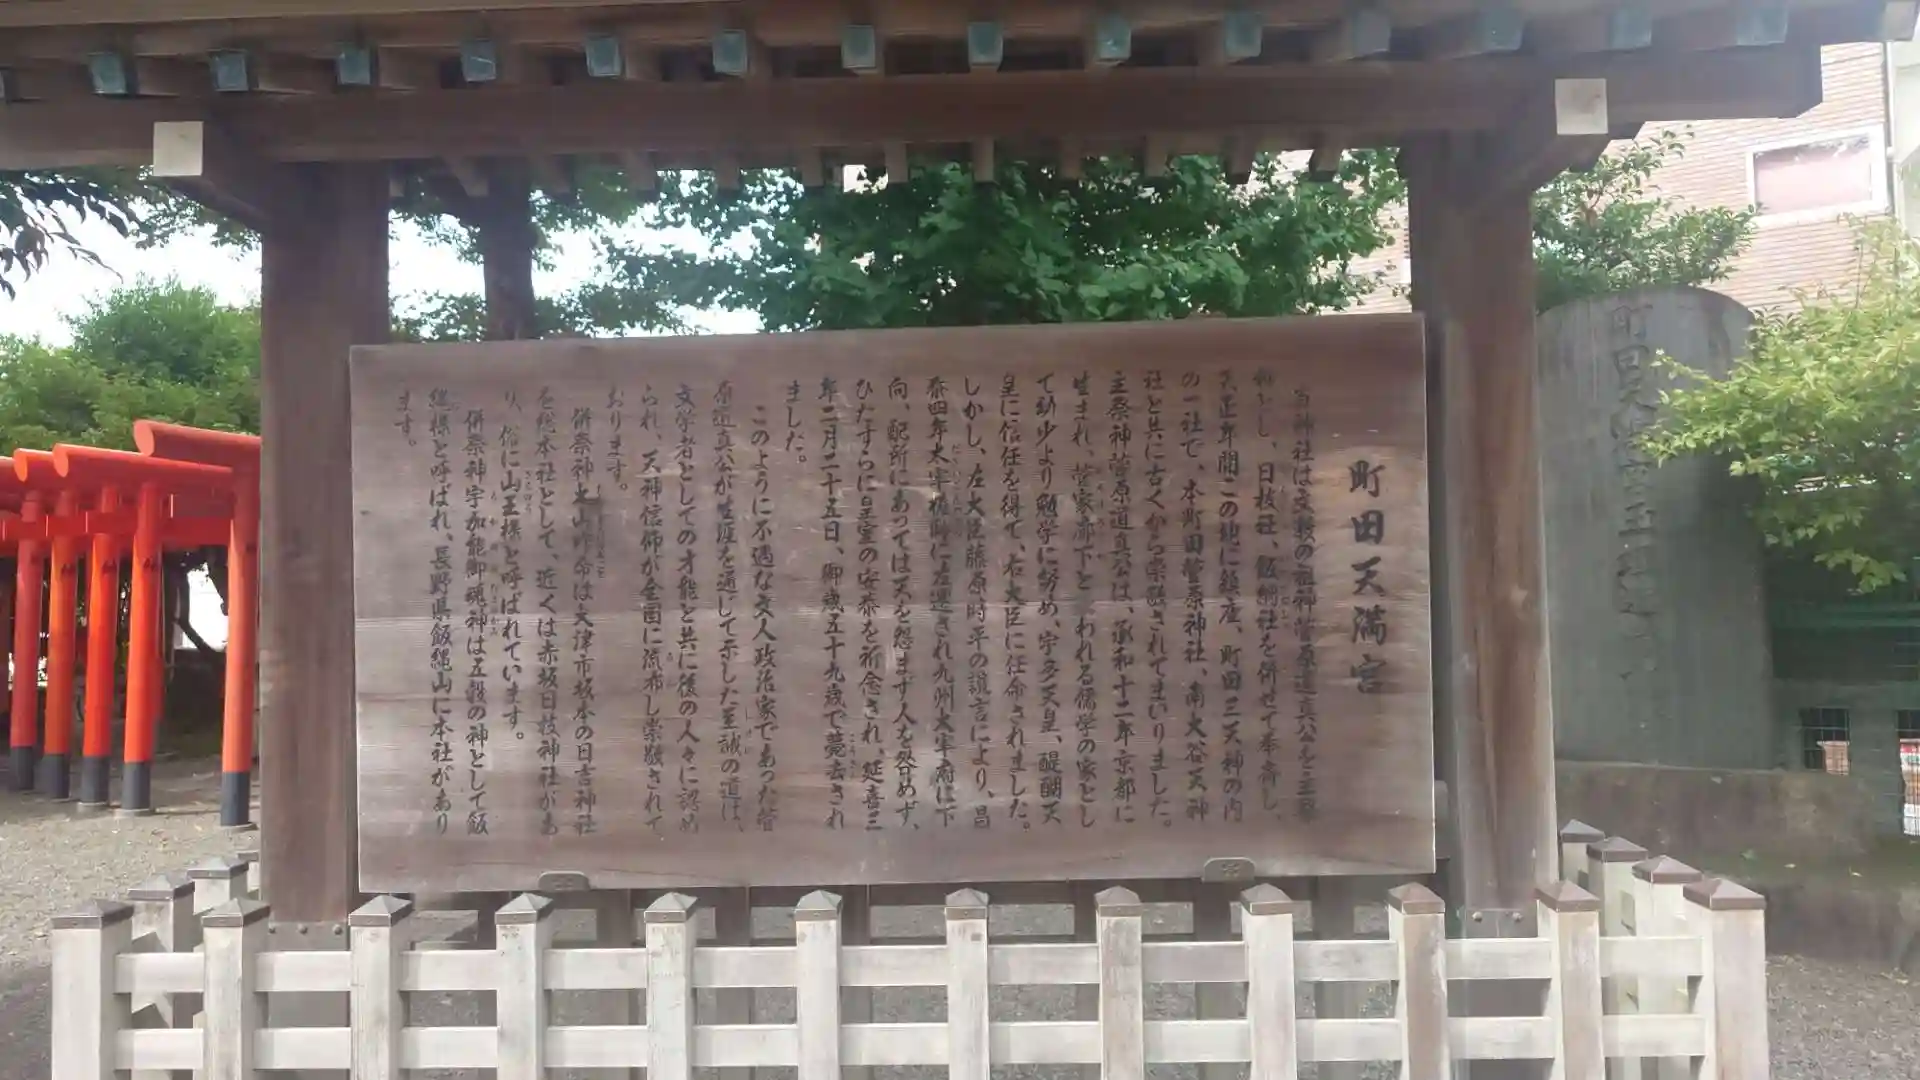 町田天満宮
当神社は文教の祖神菅原道真公を主祭
神とし、日枝社、飯綱社を併せて奉斎し、
天正年間この地に鎮座、町田三天神の内
の一社で、本町田菅原神社、南大谷天神
社と共に古くから崇敬されてまいりました。
主祭神菅原道真公は、承和十二年京都に
生まれ、菅家廊下と われる儒学の家とし
て幼少より勉学に努め、宇多天皇、醍醐天
皇に信任を得て、右大臣に任命されました。
しかし、左大臣藤原時平の讒言により、昌
泰四年大宰権師に左遷され九州大宰府に下
向、配所にあっては天を怨まず人を咎めず、
ひたすらに皇室の安泰を祈念され、延喜三
年二月二十五日、御歳五十九歳で薨去され
ました。
このように不遇な文人政治家であった菅
原道真公が生涯を通して示した至誠の道は、
文学者としての才能と共に後の人々に認め
られ、天神信仰が全国に流布し崇敬されて
おります。
併祭神大山咋命は大津市坂本の日吉神社
を総本社として、近くは赤坂日枝神社があ
り、俗に山王様と呼ばれています。
併祭神宇加能御魂神は五穀の神として飯
縄様と呼ばれ、長野県飯縄山に本社があり
ます。
町田天満宮